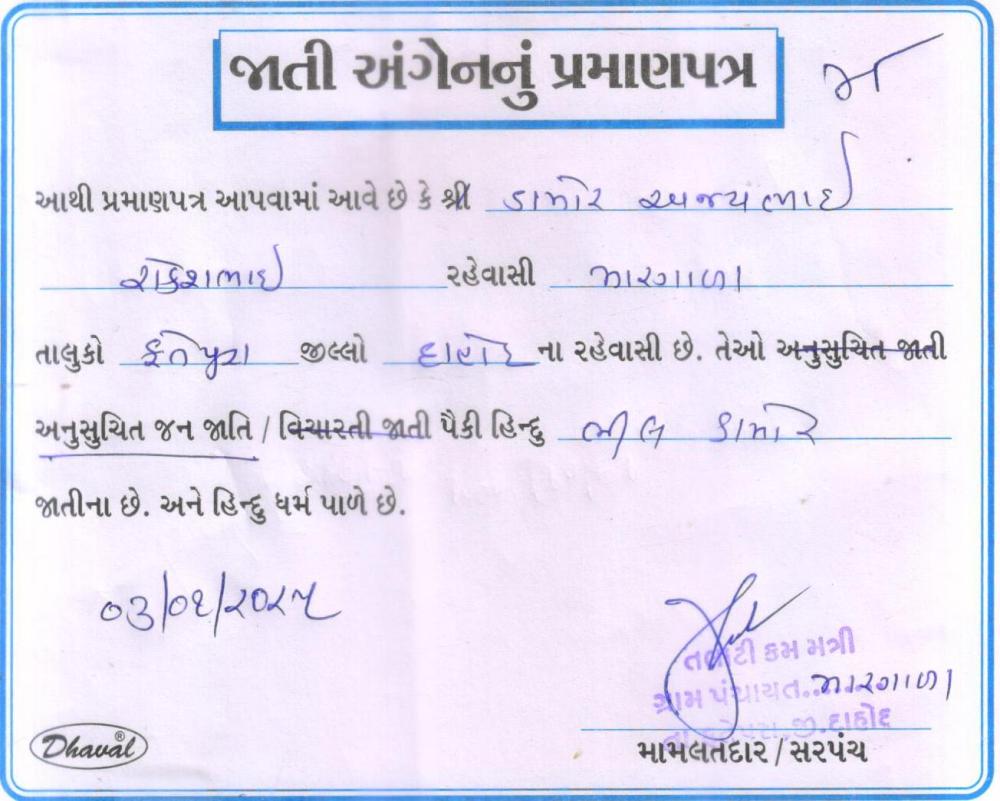 જાતી અંગેનનું પ્રમાણપત્ર
આથી પ્રમાણપત્ર આપવામાં આવે છે કે શ્રી ડામોર અજયભાઈ
રાકેશભાઈ રહેવાસી મારગાળા
તાલુકો ફતેપુરા જીલ્લો દાહોદ ના રહેવાસી છે. તેઓ અનુસુચિત જાતી
અનુસુચિત જન જાતિ / વિચારતી જાતી પૈકી હિન્દુ ભીલ ડામોર
જાતીના છે. અને હિન્દુ ધર્મ પાળે છે.
૦૩/૦૧/૨૦૨૫
તલાટી કમ મંત્રી
ગ્રામ પંચાયત.મારગાળા
તા.ફતેપુરા.જી.દાહોદ
Dhaval®
મામલતદાર / સરપંચ